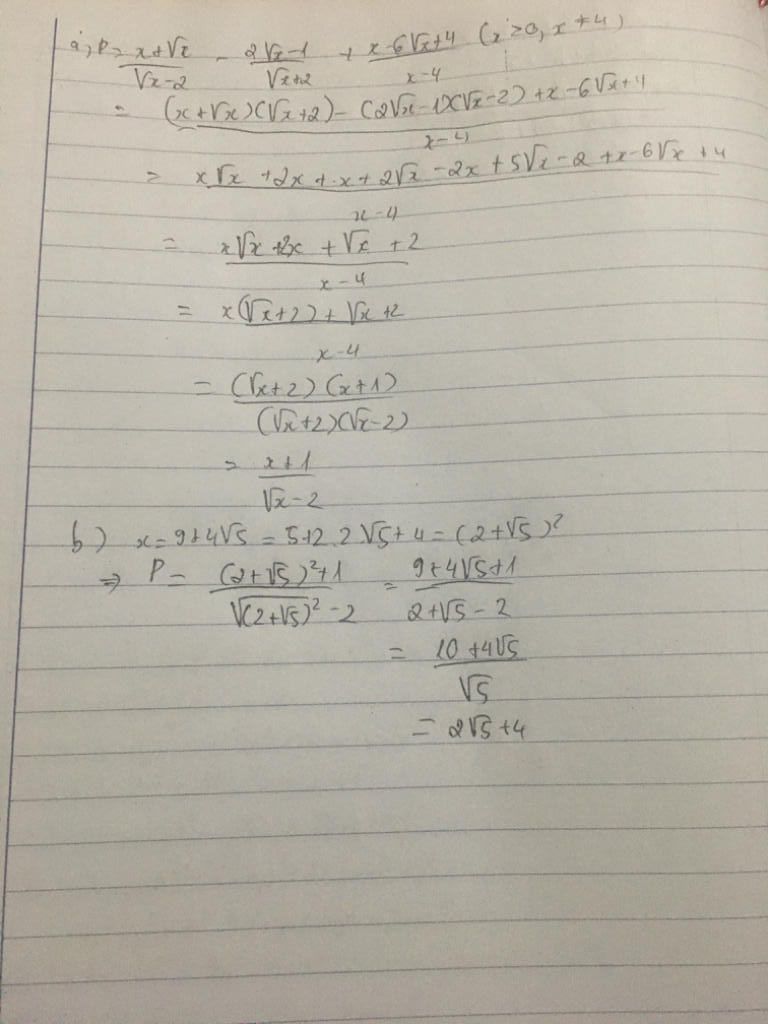 a, P = (x+√x)/(√x-2) - (2√x-1)/(√x+2) + (x-6√x+4)/(x-4) (x≥0, x≠4)
= ((x+√x)(√x+2) - (2√x-1)(√x-2) + x-6√x+4)/(x-4)
= (x√x + 2x + x + 2√x - 2x + 5√x - 2 + x - 6√x + 4)/(x-4)
= (x√x + 2x + √x + 2)/(x-4)
= (x(√x+2) + √x+2)/(x-4)
= ((√x+2)(x+1))/((√x+2)(√x-2))
= (x+1)/(√x-2)
b) x = 9+4√5 = 5+2.2.√5+4 = (2+√5)²
⇒ P = ((2+√5)²+1)/(√(2+√5)² - 2) = (9+4√5+1)/(2+√5-2)
= (10+4√5)/√5
= 2√5+4